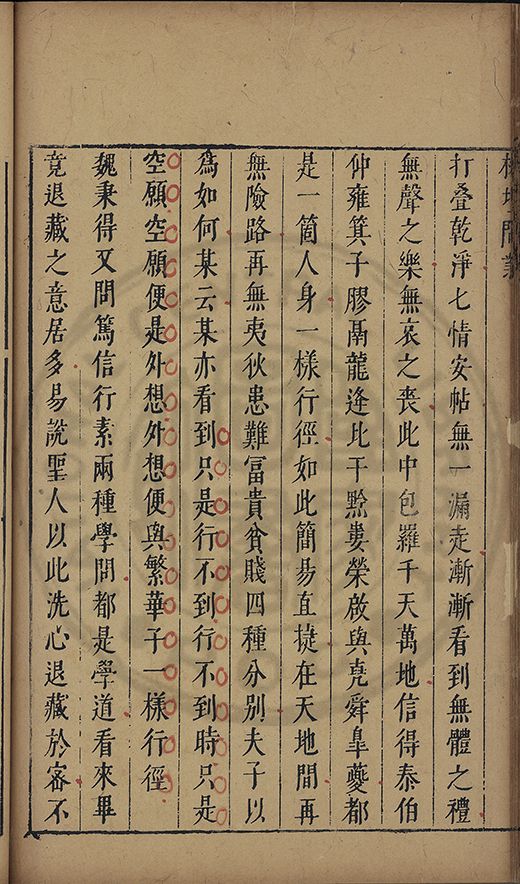 榕壇問業
打叠乾淨七情安帖無一漏走漸漸看到無體之禮
無聲之樂無哀之喪此中包羅千天萬地信得泰伯
仲雍箕子膠鬲龍逄比干黔婁榮啟與堯舜皐夔都
是一箇人身一樣行徑如此簡昜直捷在天地間再
無險路再無夷狄患難富貴貧賤四種分別夫子以
為如何某云某亦看到只是行不到行不到時只是
空願空願便是外想外想便與繁華子一樣行徑
魏秉得又問篤信行素兩種學問都是學道看來畢
竟退藏之意居多易說聖人以此洗心退藏於宻不